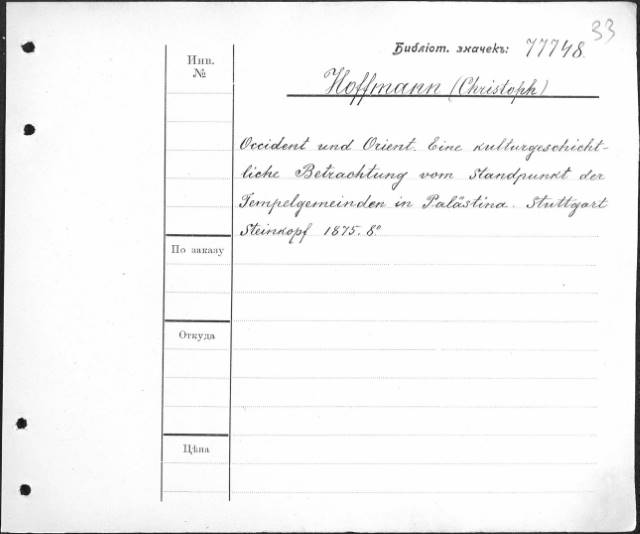 33
Библіот. значекъ: 77748.
Инв.
№
Hoffmann (Christoph)
Occident und Orient. Eine kulturgeschicht-
liche Betrachtung vom Standpunkt der
Tempelgemeinden in Palästina. Stuttgart
Steinkopf 1875. 8°
По заказу
Откуда
Цѣна